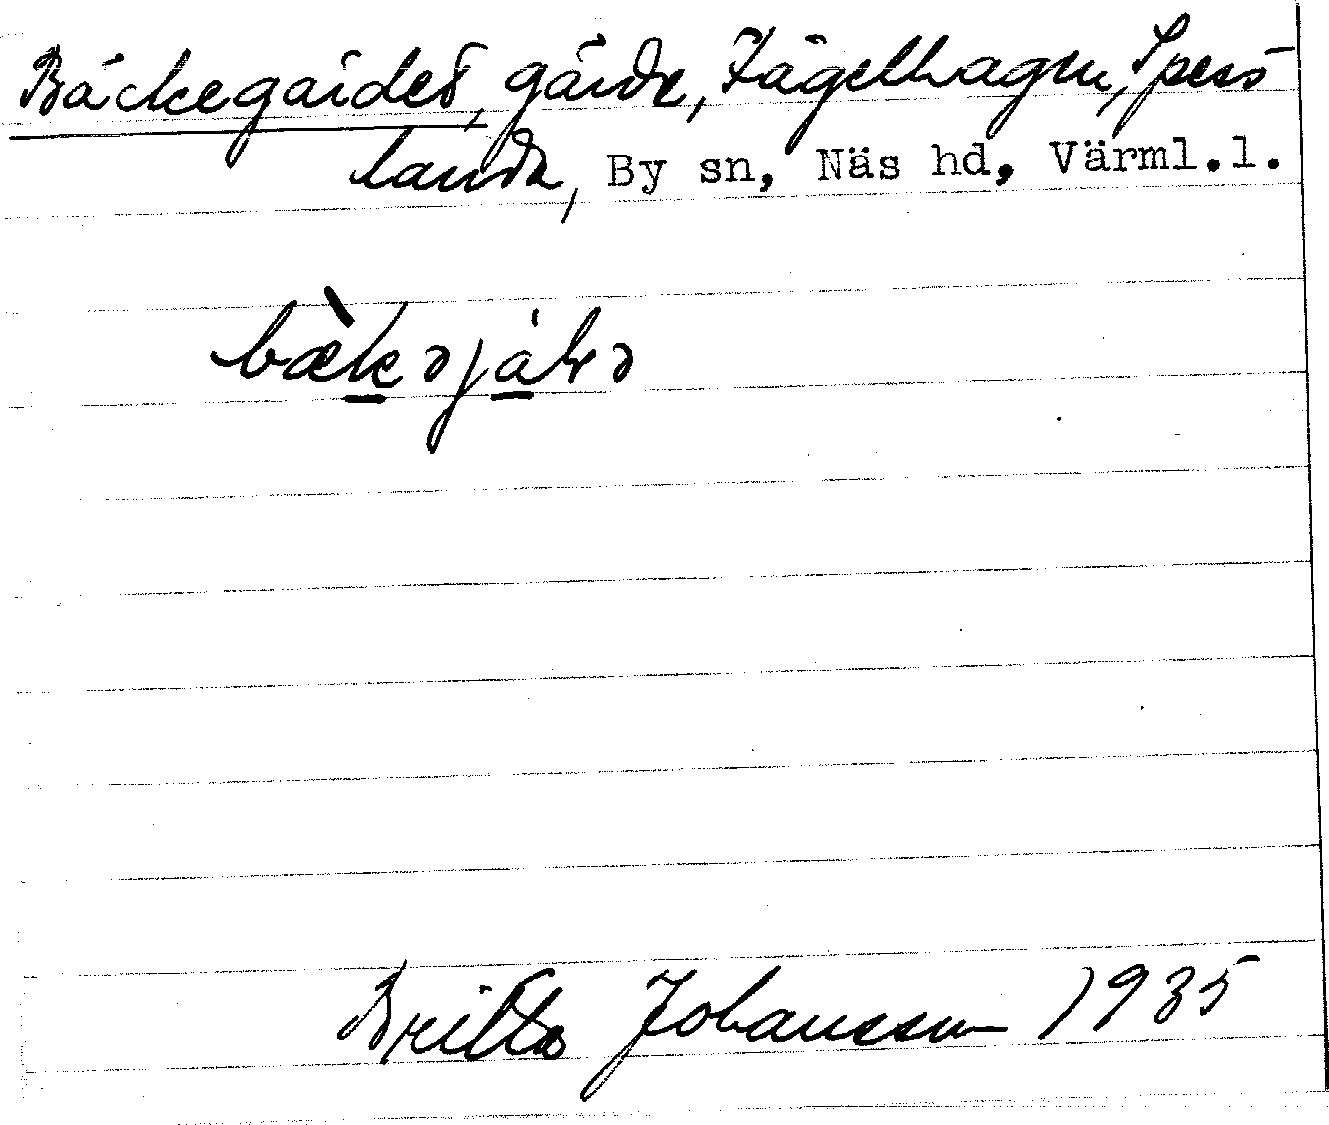 Bäckegärdet, gärde, Fågelhagen, Spess-
landa, By sn, Näs hd, Värml.l.
Britta Johansson 1935